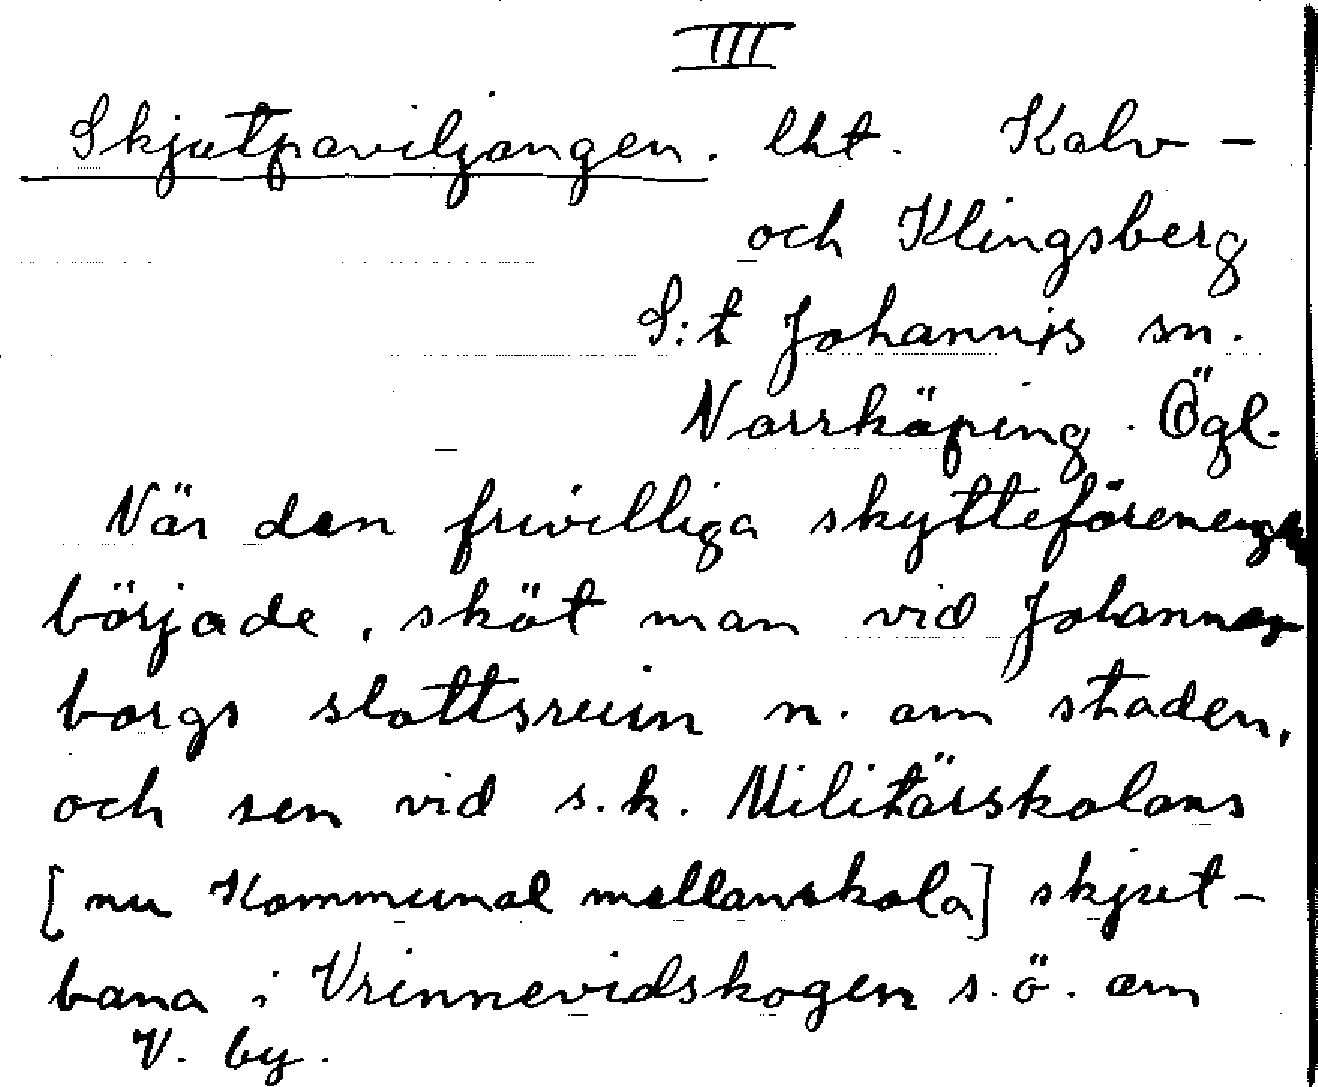 III
Skjutpaviljongen. lht. Kalv-
och Klingsberg
S:t Johannis sn.
Norrköping. Ögl.
När den frivilliga skytteföreningen
började, sköt man vid Johannes-
borgs slottsruin n. om staden,
och sen vid s.k. Militärskolans
[nu Kommunal mellanskola] skjut-
bana i Vrinnevidskogen s.ö. om
V. by.